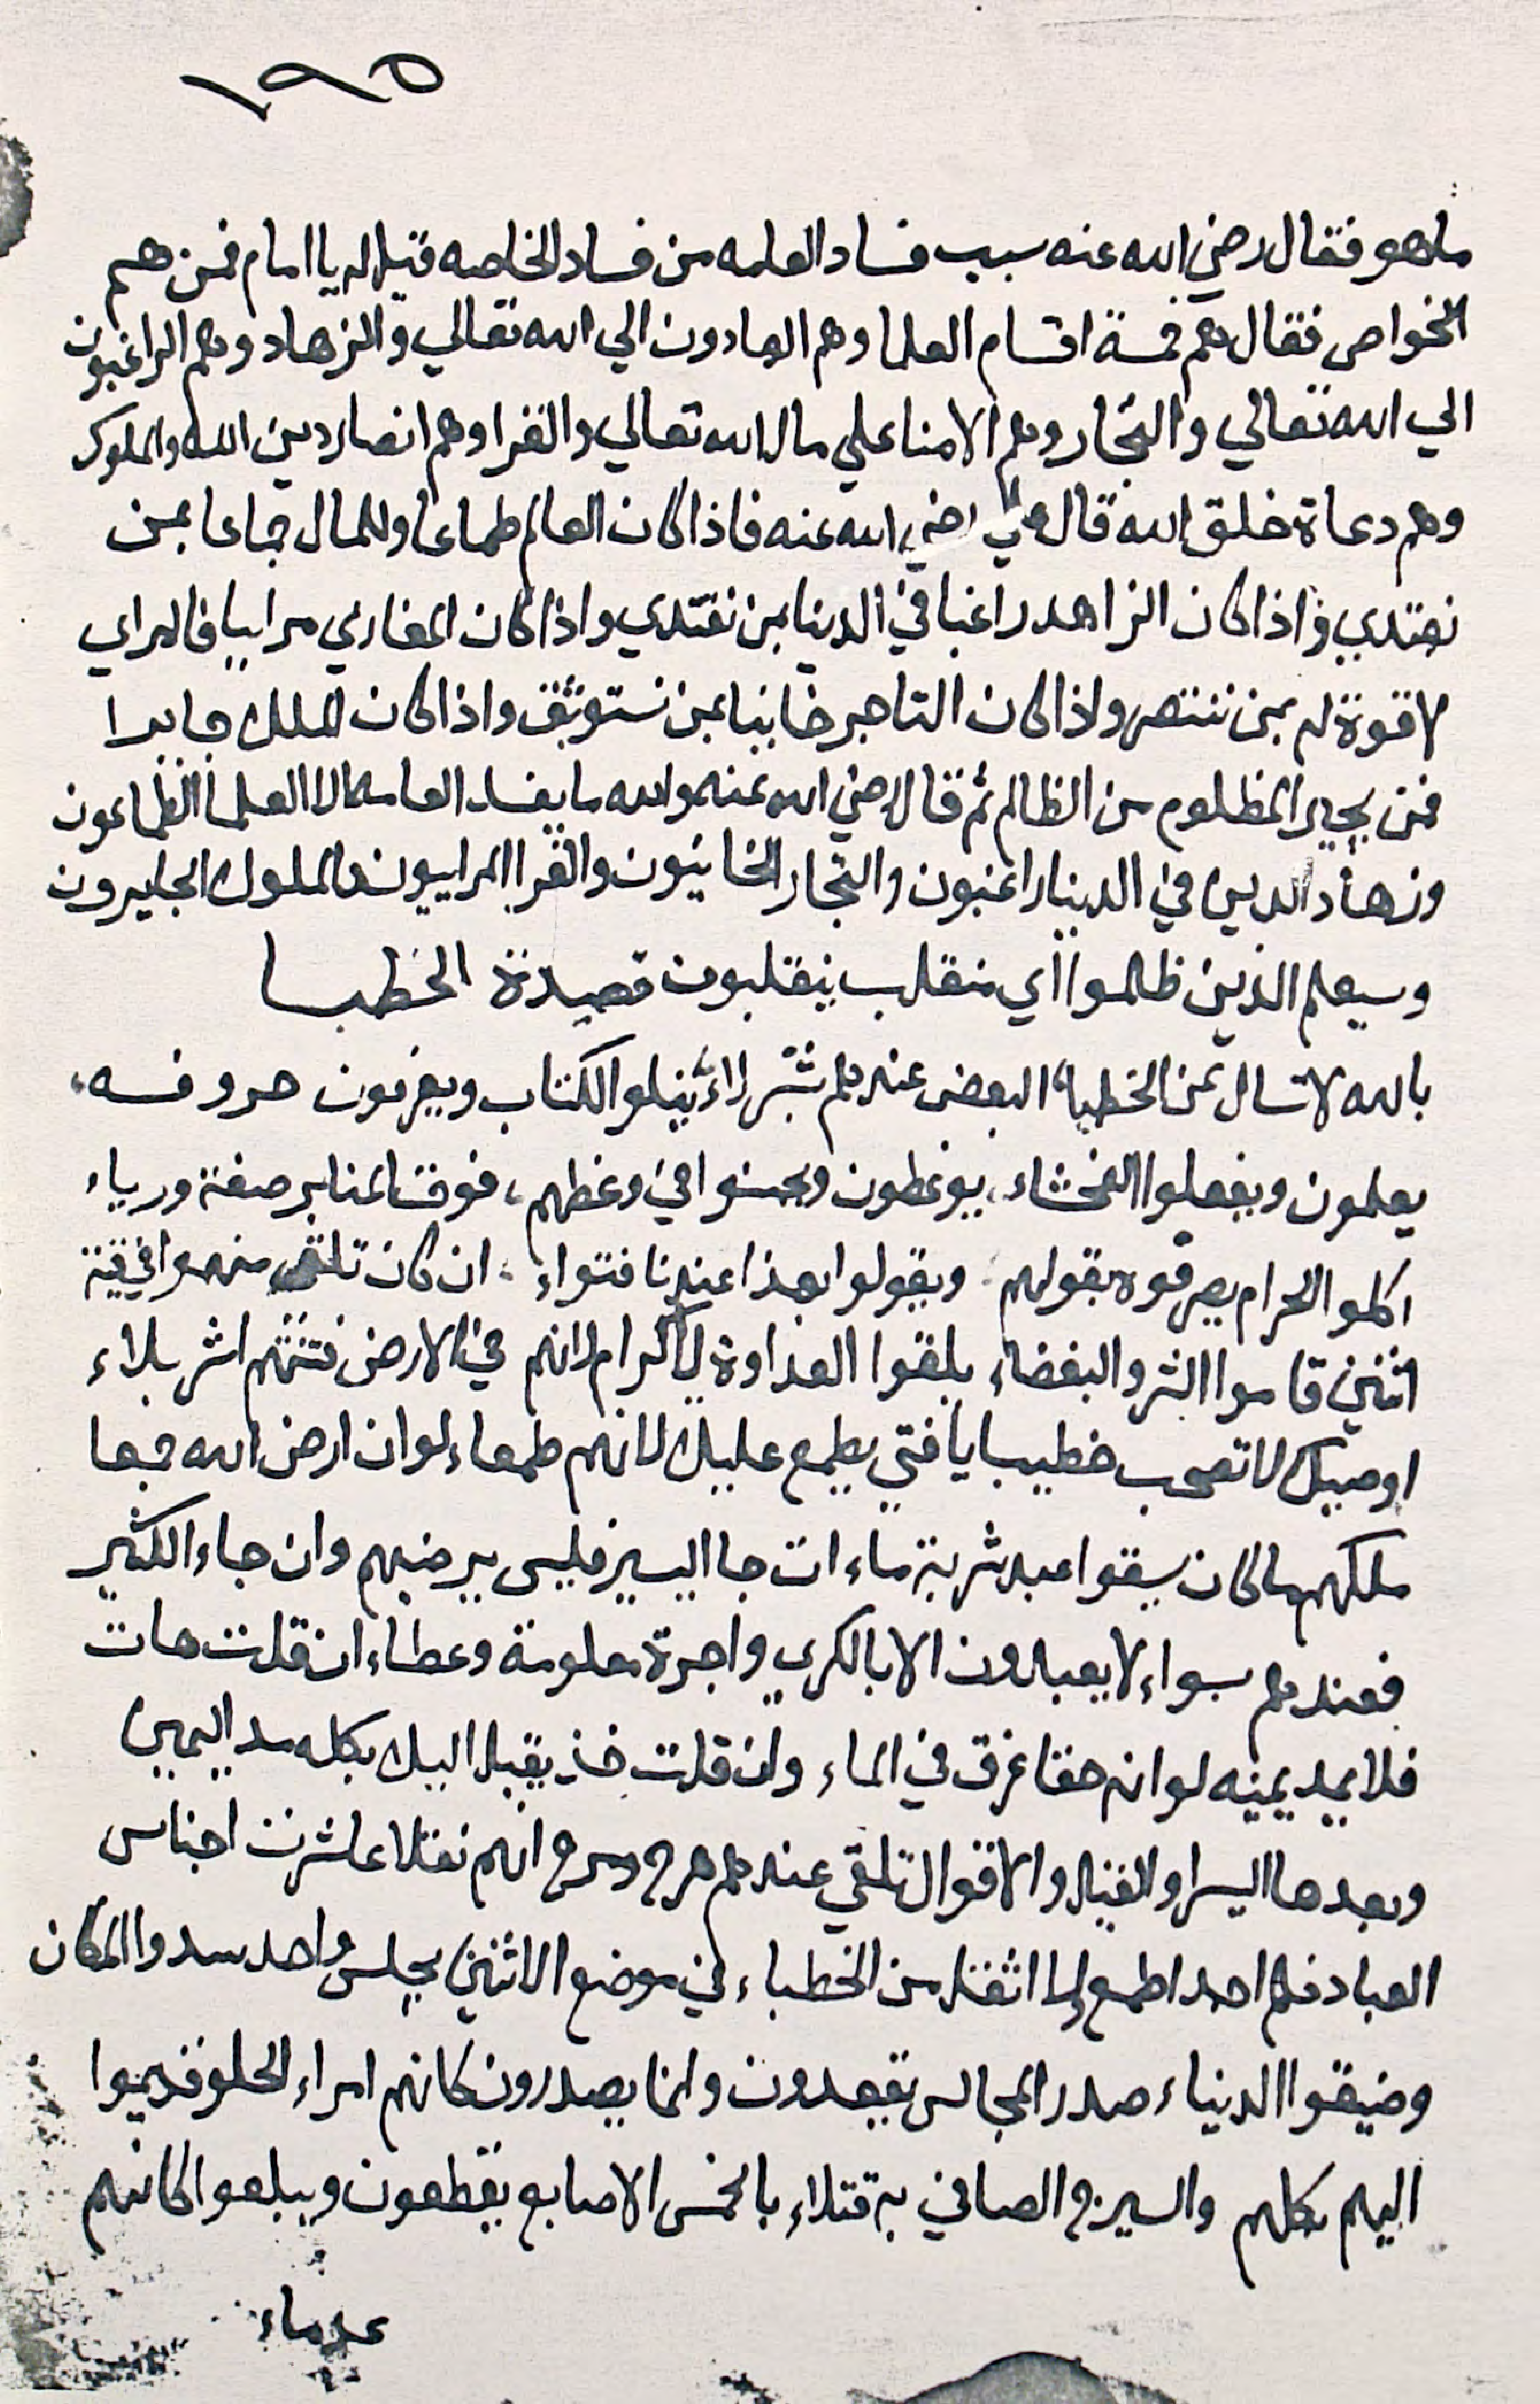 ١٩٥
ماهو فقال رضي الله عنه سبب فساد العامه من فساد الخاصه قيل له يا امام فمن هم
الخواص فقال هم خمسة اقسام العلما وهم الهادون الي الله تعالي والزهاد وهم الراغبون
الي الله تعالي والتجار وهم الامنا علي مال الله تعالي والقرا وهم انصار دين الله والملوك
وهم دعاة خلق الله قال علي رضي الله عنه فاذا كان العالم طماعا وللمال جماعا بمن
نهتدي واذا كان الزاهد راغبا في الدنيا بمن نقتدي واذا كان المغازي مرابيا فالمراي
لا قوة له بمن ننتصر واذا كان التاجر خاينا بمن نستوثق واذا كان الملك جابرا
فمن يجير المظلوم من الظالم ثم قال رضي الله عنه والله ما يفسد العامه الا العلما الطماعون
وزهاد الدين في الدنيا راغبون والتجار الخاينون والقرا المرابيون والملوك الجايرون
وسيعلم الذين ظلموا اي منقلب ينقلبون قصيدة الخطبا
بالله لا تسال عن الخطباء البعض عندهم شر راء يتلوا الكتاب ويعرفون حروفه،
يعلمون ويفعلوا الفحشاء، يوعظون ويحسنوا في وعظهم، فوق المنابر صفة ورياء
اكلوا الحرام يصرفوه بقولهم، ويقولوا بهذا عندنا فتواء، ان كان تلقي منهموا في قرية
اثنين قاموا الشر والبغضاء يلقوا العداوة للكرام لانهم في الارض فتنتهم اشر بلاء
اوصيك لا تصحب خطيبا يا فتي يطمع عليك لانهم طمعاء لو ان ارض الله جمعا
ملكهم ما كان يسقوا عبد شربة ماء ان جا اليسير فليس يرضيهم وان جاء الكثير
فعندهم سواء لا يعبدون الا بالكري واجرة معلومة وعطاء ان قلت هات
فلا يمد يمينه لو انه حقا غرق في الماء وان قلت خذ يقبل اليك بكله مد اليمين
وبعدها اليسرا والفيل والاقوال تلقي عندهم هرج ومرج انهم نقلا عاشرت اجناس
العباد فلم احد اطمع ولا اثقل من الخطباء في موضع الاثنين يجلس واحد سدوا المكان
وضيقوا الدنياء صدر المجالس يقعدون وانما يصدرون كانهم امراء الحلو قديموا
اليهم كلهم والسيرج الصافي به قتلاء بالخمس الاصابع يقطعون ويبلعوا كانهم
عدماء